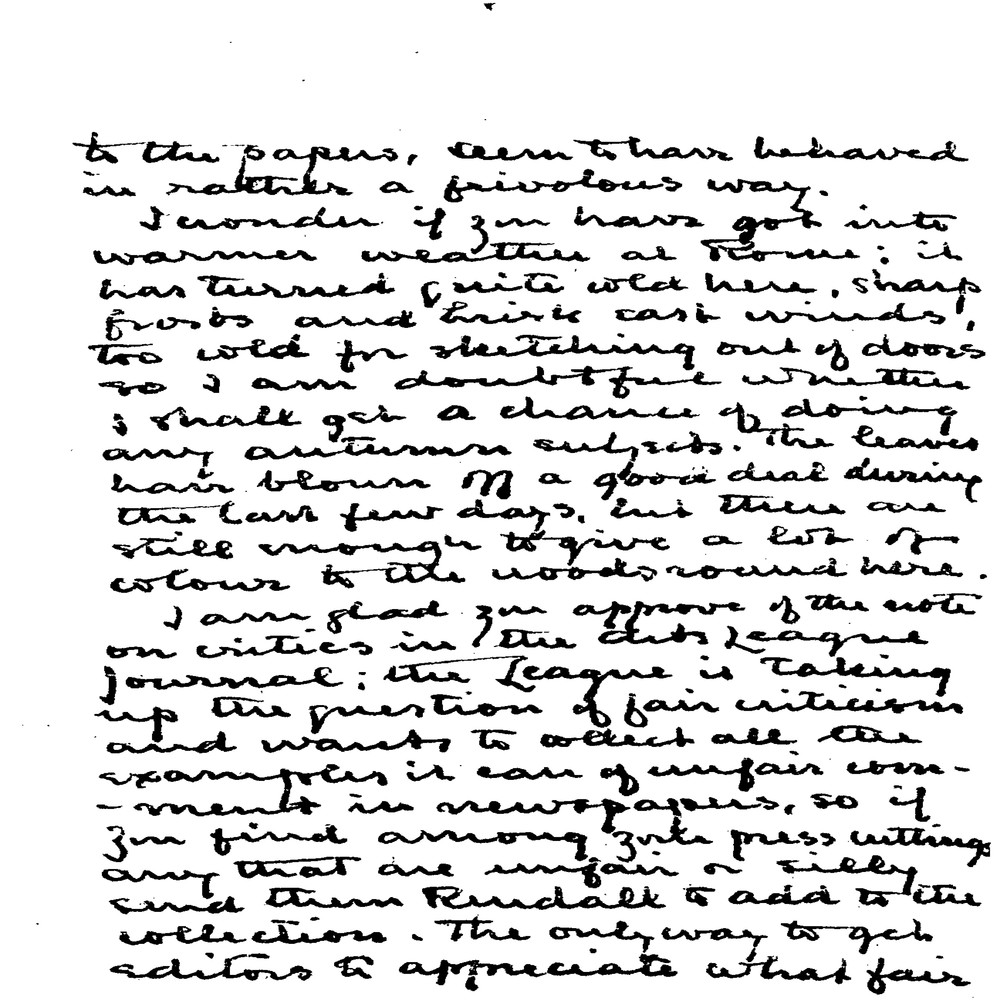 to the papers, seem to have behaved
in rather a frivolous way.
I wonder if you have got into
warmer weather at Rome: it
has turned quite cold here, sharp
frosts and brisk east winds,
too cold for sketching out of doors
so I am doubtful whether
I shall get a chance of doing
any autumn subjects. The leaves
have blown off a good deal during
the last few days, but there are
still enough to give a lot of
colour to the woods round here.
I am glad you approve of the note
on critics in the Arts League
Journal: the League is taking
up the question of fair criticism
and wants to collect all the
examples it can of unfair com-
-ment in newspapers, so if
you find among your press cuttings
any that are unfair or silly
send them Rendall to add to the
collection. The only way to get
editors to appreciate what fair